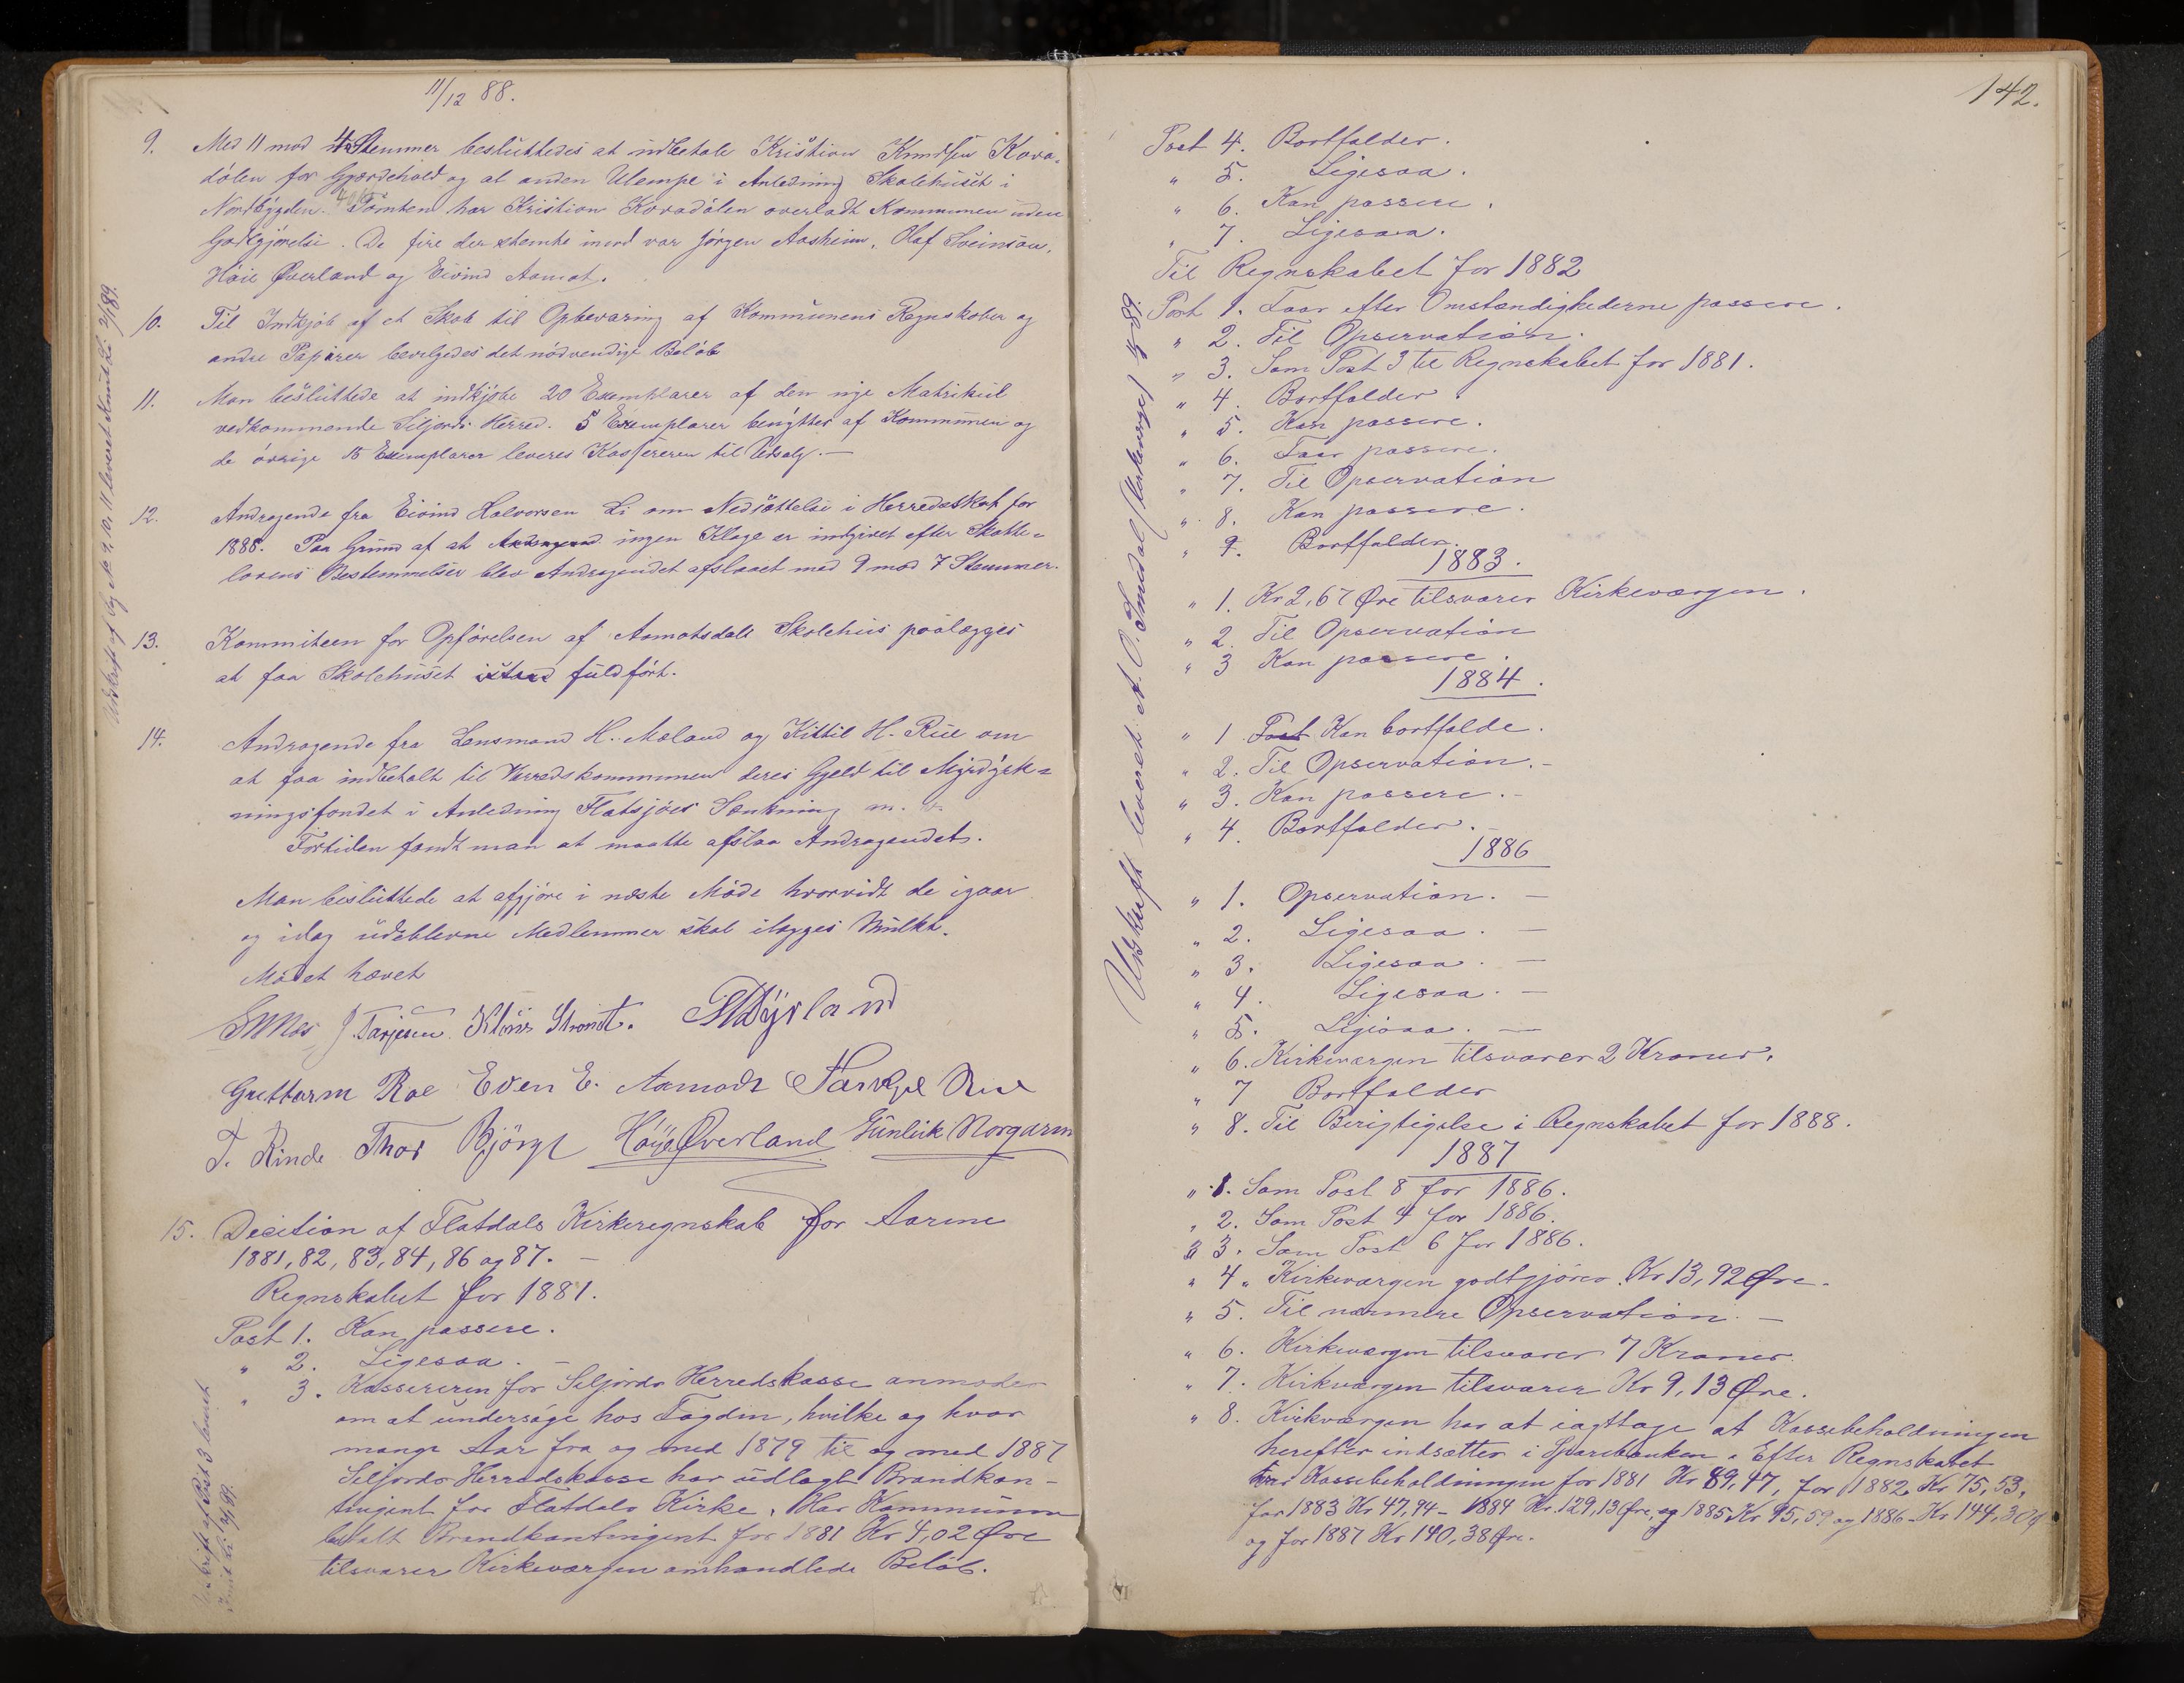 11/12 88.
9. Med 11 mod 4 Stemmer besluttedes at indbetale Kristian Knudsen Kova-
dalen for Gjærdehold og al anden Ulempe i Anledning Skolehuset i
Nordbygden. Tomten har Kristian Kovadalen overladt Kommunen uden
Godtgjørelse. De fire der stemte imod var Jørgen Aasheim, Olaf Sveinson,
Høie Øverland og Eivind Aamot.
10. Til Indkjøb af et Skab til Opbevaring af Kommunens Regnskaber og
andre Papirer bevilgedes det nødvendige Beløb
11. Man besluttede at indkjøbe 20 Exemplarer af den nye Matrikul
vedkommende Siljords Herred. 5 Exemplarer benyttes af Kommunen og
de øvrige 15 Exemplarer leveres Kassereren til Udsalg. —
12. Andragende fra Eivind Halvorsen Li om Nedsættelse i Herredsskat for
1888. Paa Grund af at ingen Klage er indgivet efter Skatte-
lovens Bestemmelser blev Andragendet afslaaet med 9 mod 7 Stemmer.
13. Kommiteen for Opførelsen af Aamotsdals Skolehus paalægges
at faa Skolehuset istand fuldført.
14. Andragende fra Lensmand H. Moland og Kittil H. Rue om
at faa indbetalt til Herredskommunen deres Gjeld til Myrdyrk-
ningsfondet i Anledning Flatsjøes Sænkning m. v.
Fortiden fandt man at maatte afslaa Andragendet.
Man besluttede at afgjøre i næste Møde hvorvidt de igaar
og idag udeblevne Medlemmer skal ilægges Mulkt.
Mødet hævet
J. Tarjesen. Strondt. Dyrland
Guttorm Roe Even E. Aamodt Tarkjel Rue
T. Rinde Thor Bjørge Høye Øverland Gunleik Norgarn
15. Decition af Flatdals Kirkeregnskab for Aarene
1881, 82, 83, 84, 86 og 87. —
Regnskabet for 1881.
Post 1. Kan passere.
" 2. Ligesaa. —
" 3. Kassereren for Seljords Herredskasse anmodes
om at undersøge hos Fogden, hvilke og hvor
mange Aar fra og med 1879 til og med 1887
Seljords Herredskasse har udlagt Brandkon-
tingent for Flatdals Kirke. Har Kommunen
betalt Brandkontingent for 1881 Kr 4,02 Øre
tilsvarer Kirkeværgen omhandlede Beløb.
Udskrift af Sag No 9, 10, 11 leveret Knut Li 2/1 89.
Udskrift af Post 3 leveret
Knut Li 89.
142.
Post 4. Bortfalder.
" 5. Ligesaa.
" 6. Kan passere.
" 7. Ligesaa.
Til Regnskabet for 1882
Post 1. Faar efter Omstændighederne passere.
" 2. Til Opservation.
" 3. Som Post 3 til Regnskabet for 1881.
" 4. Bortfalder.
" 5. Kan passere.
" 6. Faar passere.
" 7. Til Opservation
" 8. Kan passere.
" 9. Bortfalder.
1883.
" 1. Kr 2,67 Øre tilsvarer Kirkeværgen.
" 2. Til Opservation
" 3 Kan passere.
1884.
" 1 Post Kan bortfalde.
" 2. Til Opservation. —
" 3. Kan passere. —
" 4. Bortfalder. —
1886
" 1. Opservation. —
" 2. Ligesaa. —
" 3. Ligesaa. —
" 4. Ligesaa. —
" 5. Ligesaa. —
" 6. Kirkeværgen tilsvarer 2 Kroner.
" 7 Bortfalder
" 8. Til Berigtigelse i Regnskabet for 1888.
1887
" 1. Som Post 8 for 1886.
" 2. Som Post 4 for 1886.
" 3. Som Post 6 for 1886.
" 4 " Kirkeværgen godtgjøres Kr 13,92 Øre.
" 5. Til nærmere Opservation. —
" 6. Kirkeværgen tilsvarer 7 Kroner.
" 7. Kirkværgen tilsvarer Kr 9,13 Øre.
" 8. Kirkværgen har at iagttage at Kassebeholdningen
herefter indsætter i Sparebanken. Efter Regnskabet
Kassebeholdningen for 1881 Kr 89,47, for 1882 Kr 75,53,
for 1883 Kr 47,94 – 1884 Kr. 129,13 Øre, og 1885 Kr 95,59 og 1886 – Kr 144,30
og for 1887 Kr 140,38 Øre.
Udskrift leveret A. O. Smedal (Kirkeværge) 89.